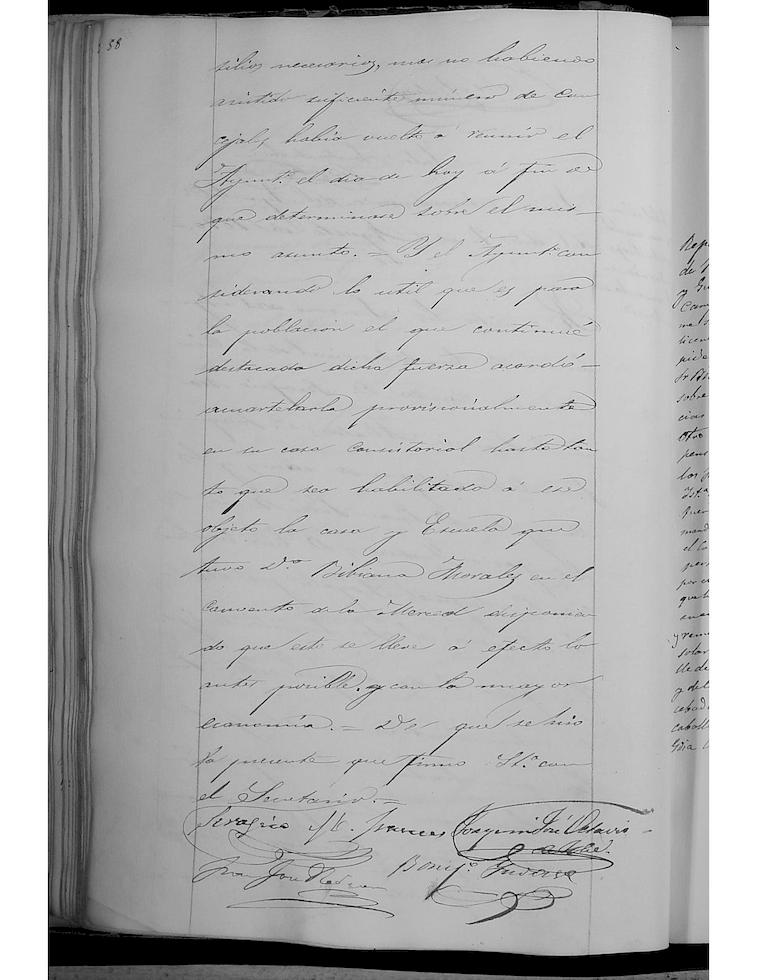 88
silios necesarios, mas no habiendo
asistido suficiente número de Con
cejales había vuelto á reunir el
Ayunt.º el dia de hoy á fin de
que determinase sobre el mis–
mo asunto. = Y el Ayunt.º con
siderando lo util que es para
la poblacion el que continué
destacada dicha fuerza acordó–
acuartelarla provisionalmente
en su casa Consistorial hasta tan
to que sea habilitada á ese
objeto la casa y Escuela que
tuvo D.ª Bibiana Morales en el
Convento de la Merced disponien
do que esto se lleve á efecto lo
antes posible y con la mayor
economía. = De que se hizo
la presente que firmó S. con
el Secretario. =
Joaquin José
Bonif.º
Juan José
Rep
de
y
Cam
me
licen
pide
Sr
sobre
cias
otro
pen
los
que
mand
el
per
por
que
y
solar
lle de
y del
caball